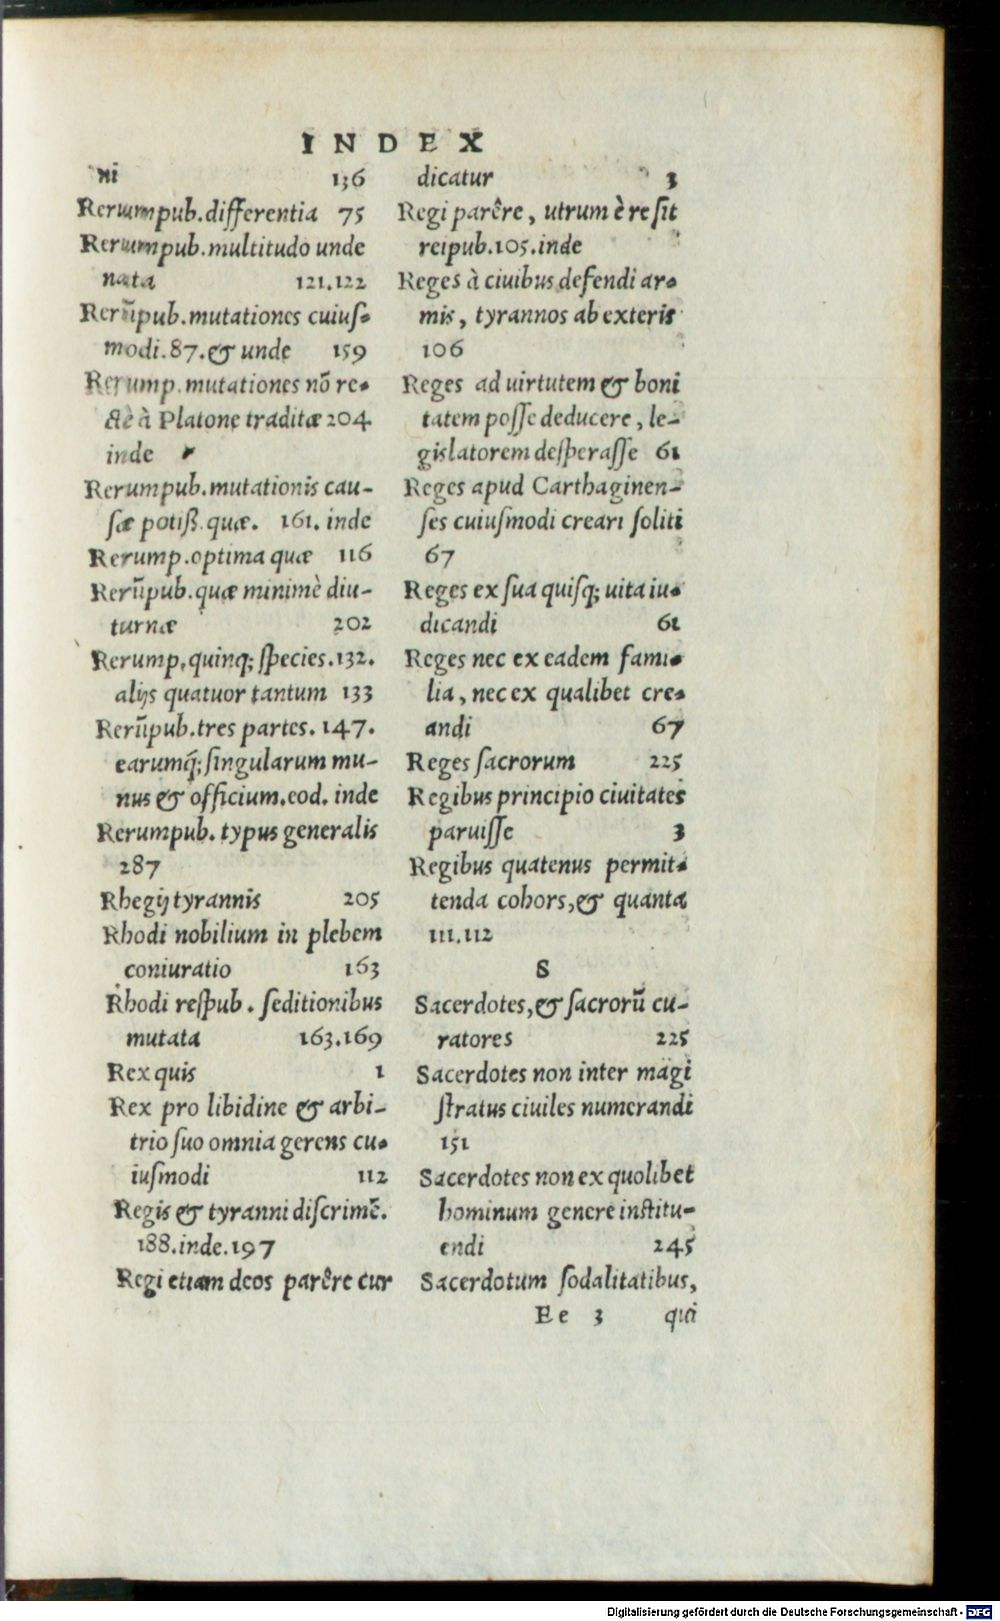 INDEX
ni 136
Rerumpub. differentia 75
Rerumpub. multitudo unde
nata 121.122
Rerūpub. mutationes cuiuſ-
modi. 87. & unde 159
Rerump. mutationes nō re-
ctè à Platone traditæ 204
inde
Rerumpub. mutationis cau-
ſæ potiß. quæ. 161. inde
Rerump. optima quæ 116
Rerūpub. quæ minimè diu-
turnæ 202
Rerump. quinq; ſpecies. 132.
alijs quatuor tantum 133
Rerūpub. tres partes. 147.
earumq́; ſingularum mu-
nus & officium. eod. inde
Rerumpub. typus generalis
287
Rhegij tyrannis 205
Rhodi nobilium in plebem
coniuratio 163
Rhodi reſpub. ſeditionibus
mutata 163.169
Rex quis 1
Rex pro libidine & arbi-
trio ſuo omnia gerens cu-
iuſmodi 112
Regis & tyranni diſcrimē.
188. inde. 197
Regi etiam deos parêre cur
dicatur 3
Regi parêre, utrum è re ſit
reipub. 105. inde
Reges à ciuibus defendi ar-
mis, tyrannos ab exteris
106
Reges ad uirtutem & boni
tatem poſſe deducere, le-
gislatorem deſperaſſe 61
Reges apud Carthaginen-
ſes cuiuſmodi creari ſoliti
67
Reges ex ſua quiſq; uita iu-
dicandi 61
Reges nec ex eadem fami-
lia, nec ex qualibet cre-
andi 67
Reges ſacrorum 225
Regibus principio ciuitates
paruiſſe 3
Regibus quatenus permit-
tenda cohors, & quanta
111.112
S
Sacerdotes, & ſacrorū cu-
ratores 225
Sacerdotes non inter magi
ſtratus ciuiles numerandi
151
Sacerdotes non ex quolibet
hominum genere inſtitu-
endi 245
Sacerdotum ſodalitatibus,
Ee 3 qui
Digitalisierung gefördert durch die Deutsche Forschungsgemeinschaft - DFG